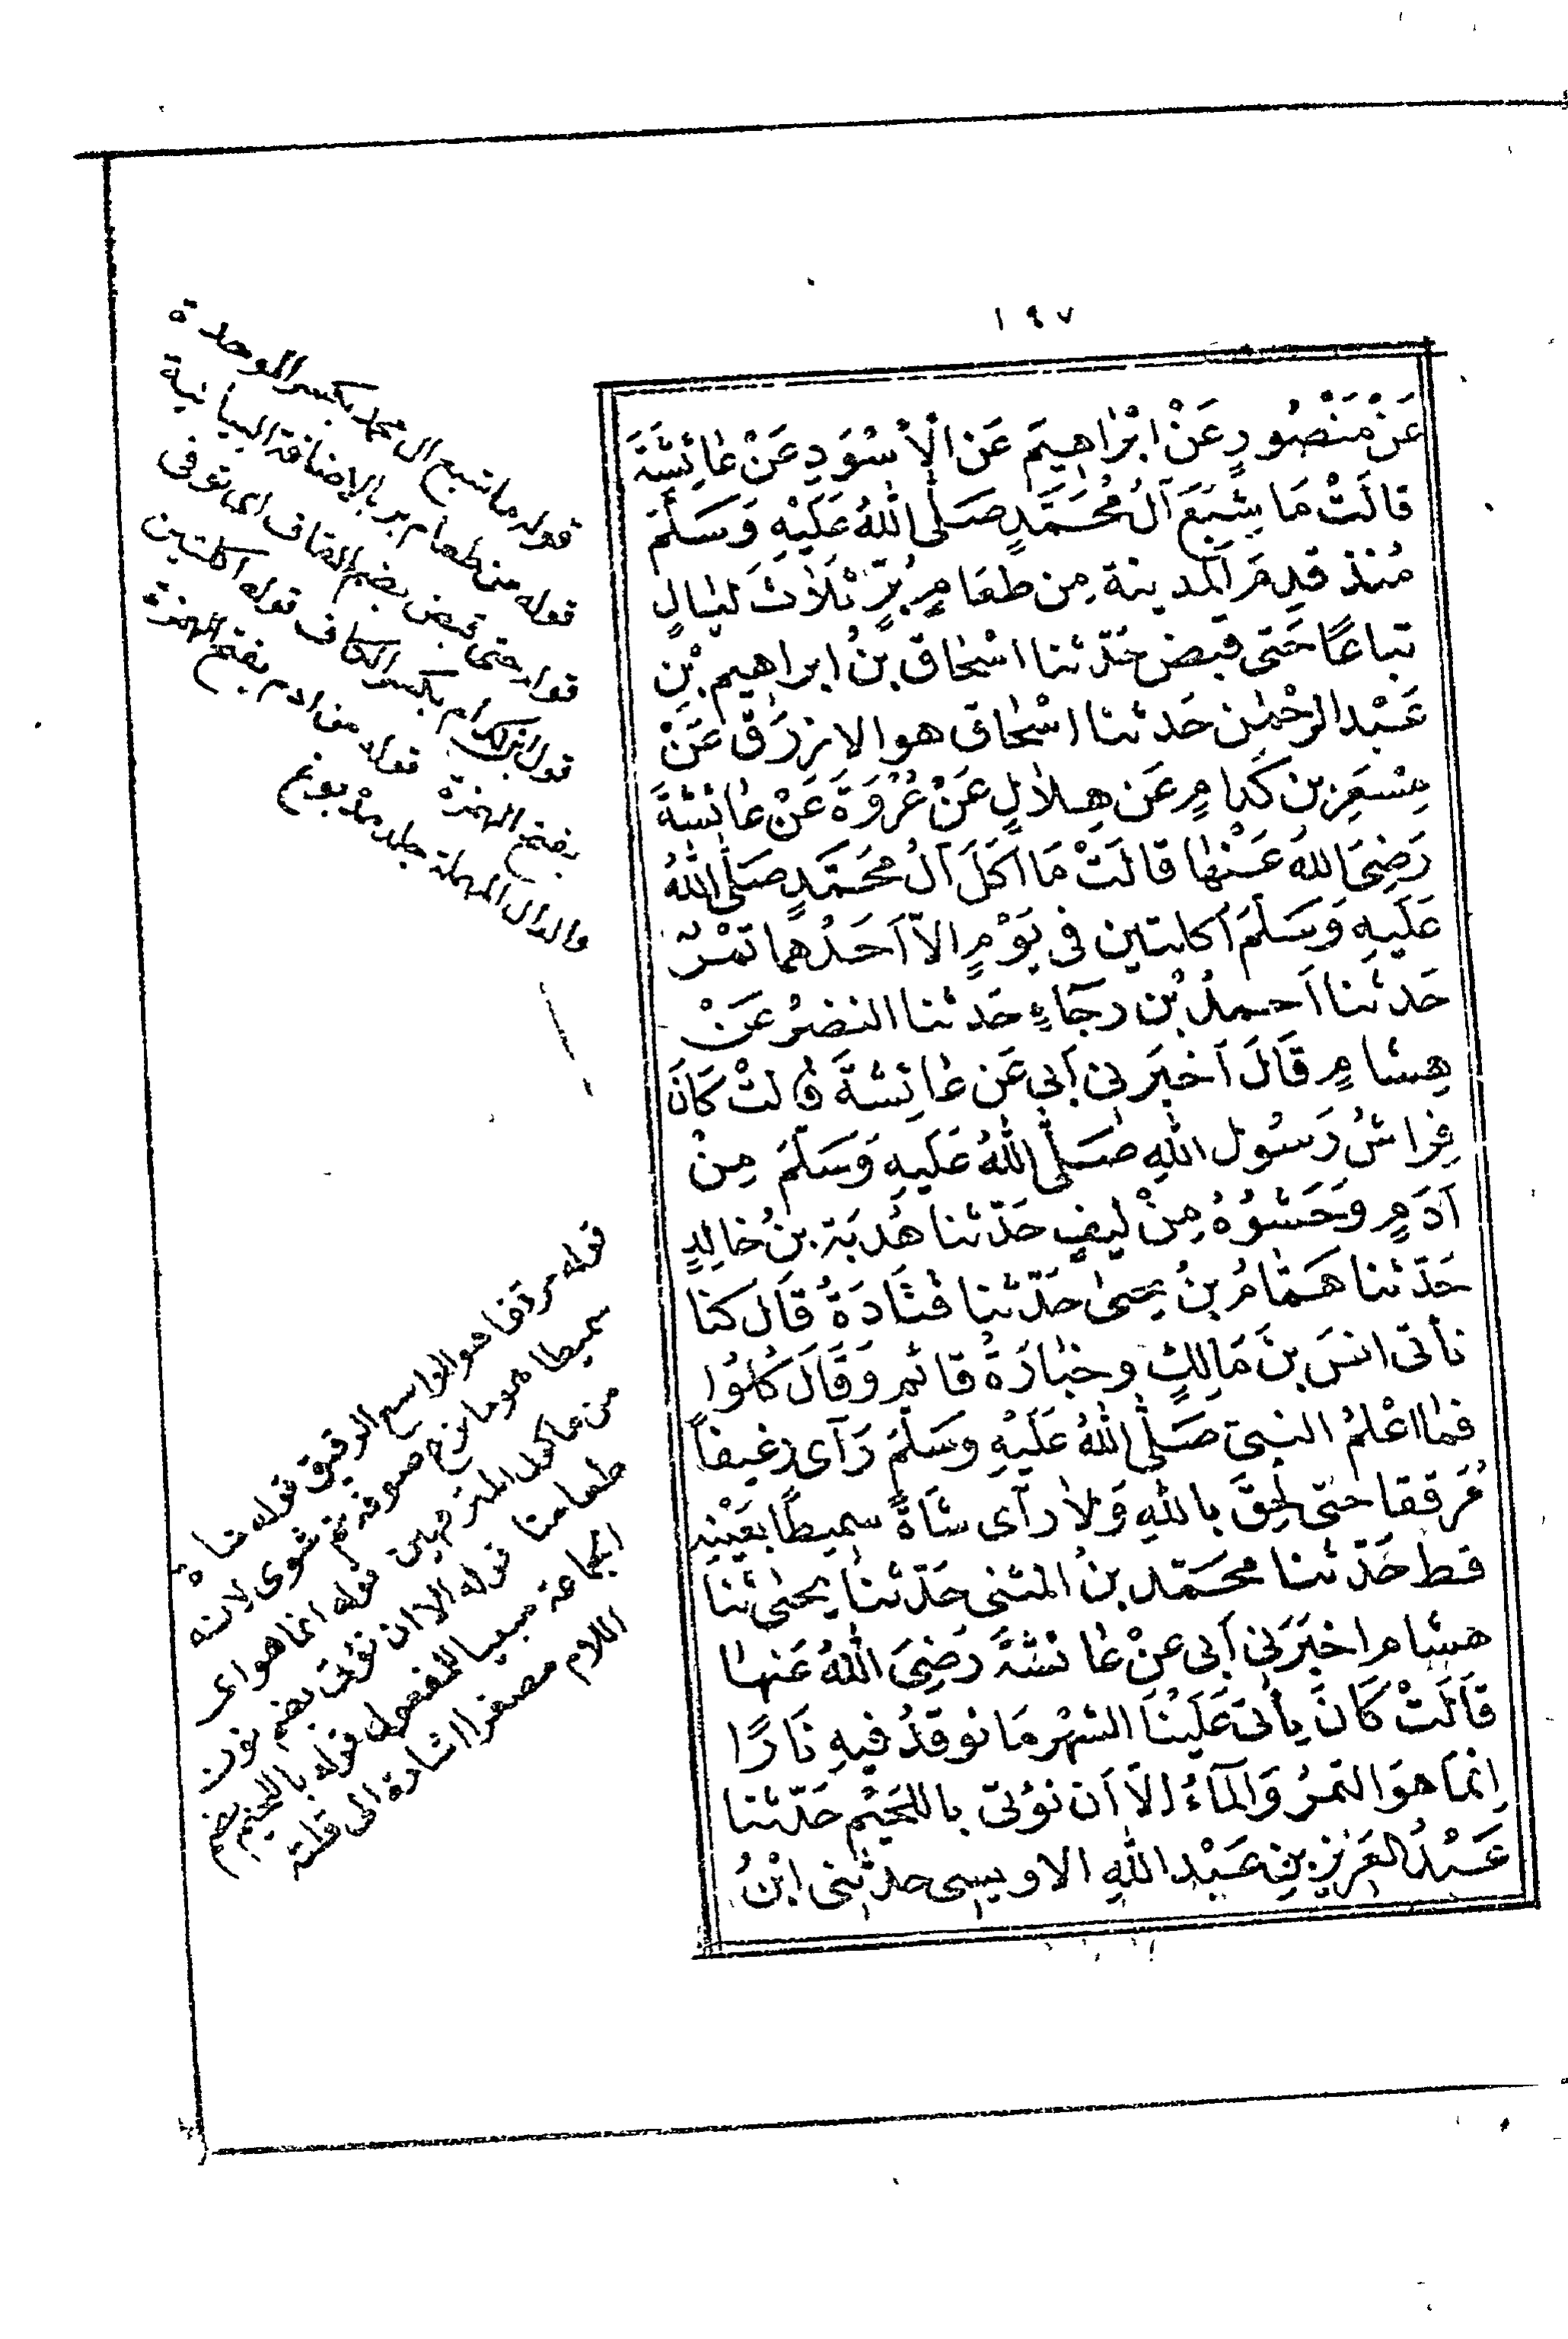 ١٩٧
عَنْ مَنْصُورٍ عَنْ اِبْرٰاهِيمَ عَنِ الْاَسْوَدِ عَنْ عٰائِشَةَ
قالَتْ مَا شَبِعَ آلُ مُحَمَّدٍ صَلَّى اللّٰهُ عَلَيْهِ وَسَلَّمَ
مُنْذُ قَدِمَ الْمَدينة مِن طعَامِ بُرٍّ ثَلَاثَ لَيٰالٍ
تباعًا حَتى قبض حَدّثنا اسْحٰاق بنُ ابراهيم بْنِ
عَبْد الرحْمٰن حَدثنا اسْحٰاق هو الازرَق عَنْ
مِسْعَرِ بن كَدامٍ عَن هِلٰالٍ عَنْ عُرْوَةَ عَنْ عٰائشةَ
رَضِىَ اللهُ عَنْهٰا قالَتْ مَا اَكَلَ آلُ مُحَمَّدٍ صَلَّى اللّٰهُ
عَلَيهِ وَسَلَّمَ اَكلتين فى يَوْمٍ الاّ اَحَدُهما تَمْرٌ
حَدثنا اَحمدُ بْن رجَآءٍ حَدثنا النضرُ عَنْ
هِشامٍ قَالَ اَخبَرَنى اَبي عَن عٰائِشةَ قٰالتْ كَانَ
فِراشُ رَسُول اللّٰهِ صَلَّى اللّٰهُ عَلَيهِ وَسَلَّمَ مِنْ
اَدَمٍ وَحَشْوُهُ مِنْ ليفٍ حَدّثنا هُدْبَة بنُ خالِدٍ
حَدّثنا هَمّٰامُ بنُ يحيىٰ حَدّثنا قَتَادَةُ قَالَ كنّا
نأتى انسَ بنَ مَالِكٍ وخبّازهُ قائم وَقَالَ كُلُوْا
فمٰا اعْلمُ النبىَّ صَلَّى اللّٰهُ عَلَيْهِ وسَلَّمَ رَآى رَغيفاً
مُرَققا حتى لحِقَ باللّٰهِ وَلاٰ رآى شَاةً سميطًا بعَيْنِهِ
قط حَدّثنا محَمّد بنُ المثنى حَدّثنٰا يحيٰى ثَنا
هشام اخبَرَنى اَبى عنْ عٰائشَةَ رَضِىَ اللّٰهُ عَنهٰا
قَالَتْ كَانَ يأتى عَلَيْنَا الشهْر مَا نوقدُ فيهِ نَارًا
اِنمَا هوَ التمرُ وَالمآءُ الاَّ اَن نؤتى باللحَيْم حَدّثنا
عَبْدُ العَزيز بنِ عَبْد اللّٰهِ الاويسى حدثنى ابْنُ
قوله ما شبع ال محمد بكسر الموحدة
قوله من طعام بر بالاضافة البيانية
قوله حتى قبض بضم القاف اى توفى
قوله ابن كدام بكسر الكاف قوله اكلتين
بفتح الهمزة قوله من ادم بفتح الهمزة
والدال المهملة جلد مدبوغ
قوله مرققا هو الواسع الرقيق قوله شاة
سميطا هو ما نزع صوفه ثم شوى لانه
من مأكول المترفهين قوله انما هو اى
طعامنا قوله الا ان نؤتى بضم نون
الجماعة مبنيا للمفعول قوله باللحيم بضم
اللام مصغرا اشارة الى قلته